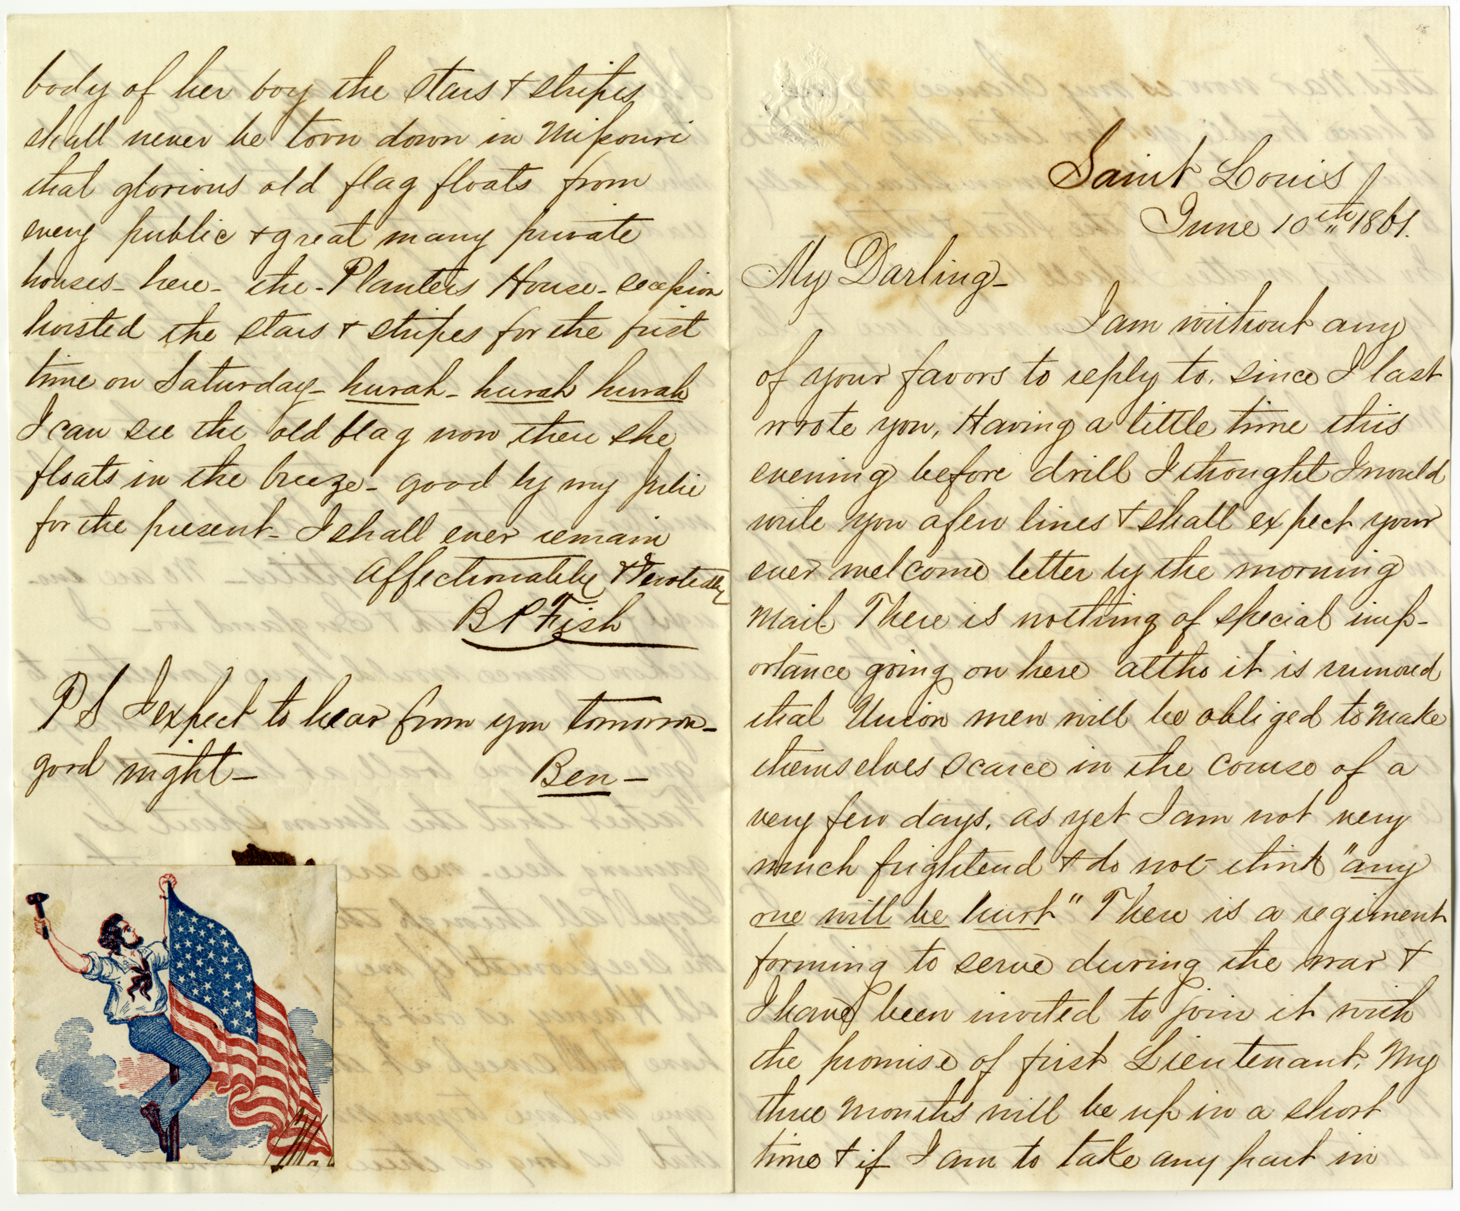 Saint Louis
June 10th 1861.
My Darling-
I am without any
of your favors to reply to. since I last
wrote you, Having a little time this
evening before drill I thought I would
write you a few lines & shall expect your
ever welcome letter by the morning
Mail. There is nothing of special imp-
ortance going on here altho it is rumored
that Union men will be obliged to make
themselves scarce in the course of a
very few days. as yet I am not very
much frightend & do not think "any
one will be hurt" There is a regiment
forming to serve during the war &
I have been invited to join it with
the promise of first Lieutenant. My
three months will be up in a short
time & if I am to take any part in
body of her boy the stars & stripes
shall never be torn down in Missouri
that glorious old flag floats from
every public & great many private
houses- here- the- Planters House- secession
hoisted the stars & stripes for the first
time on Saturday- hurah- hurah hurah
I can see the old flag now there she
floats in the breeze- good by my Julie
for the present- I shall ever remain
Affectionately & devotedly
B P Fish
P S I expect to hear from you tomorrow-
good night-
Ben-